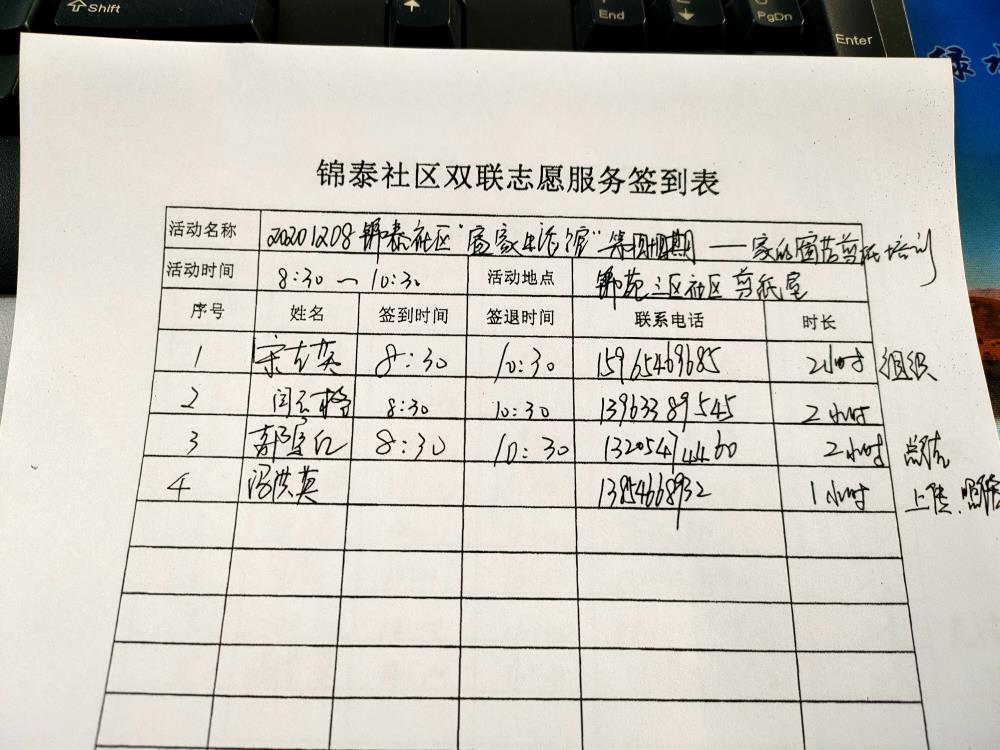 Shift
End
PgDn
Enter
绿水
锦泰社区双联志愿服务签到表
活动名称 20201208 锦泰社区"宜家生活馆"第四十四期——家的窗花剪纸培训
活动时间 8:30 — 10:30 活动地点 锦苑三区社区 剪纸屋
序号 姓名 签到时间 签退时间 联系电话 时长
1 宋左英 8:30 10:30 15965469685 2小时 组织
2 闫云梅 8:30 10:30 13963389545 2小时
3 郭宝红 8:30 10:30 13205474460 2小时 总结
4 冯洪英 13854668932 1小时 上传、照片